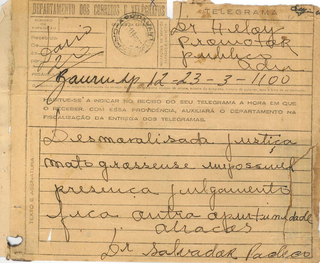 DEPARTAMENTO DOS CORREIOS E TELEGRAFOS
TELEGRAMA
Dr Heloy
Promotor
publico
Bauru sp 12-23-3-1100
HABITUE-SE A INDICAR NO RECIBO DO SEU TELEGRAMA A HORA EM QUE
O RECEBER. COM ESSA PROVIDÊNCIA, AUXILIARÁ O DEPARTAMENTO NA
FISCALIZAÇÃO DA ENTREGA DOS TELEGRAMAS.
TEXTO E ASSINATURA
Desmoralisada justiça
mato grossense impossivel
presença julgamento
fica outra apurtunidade
abracos
Dr Salvador Pacheco